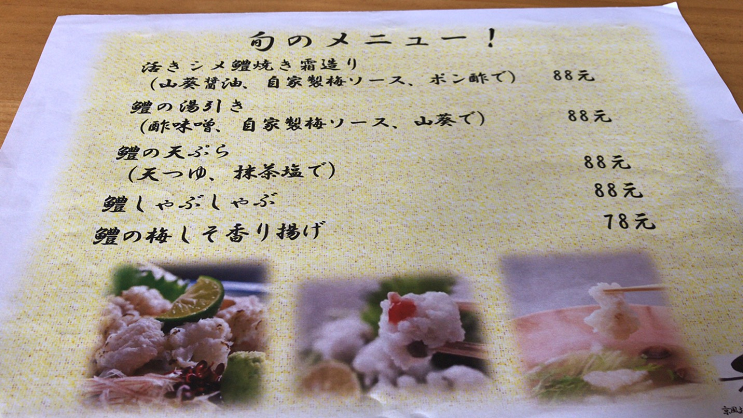 旬のメニュー！
活きシメ鱧焼き霜造り
（山葵醤油、自家製梅ソース、ポン酢で） 88元
鱧の湯引き
（酢味噌、自家製梅ソース、山葵で） 88元
鱧の天ぷら
（天つゆ、抹茶塩で） 88元
鱧しゃぶしゃぶ 88元
鱧の梅しそ香り揚げ 78元